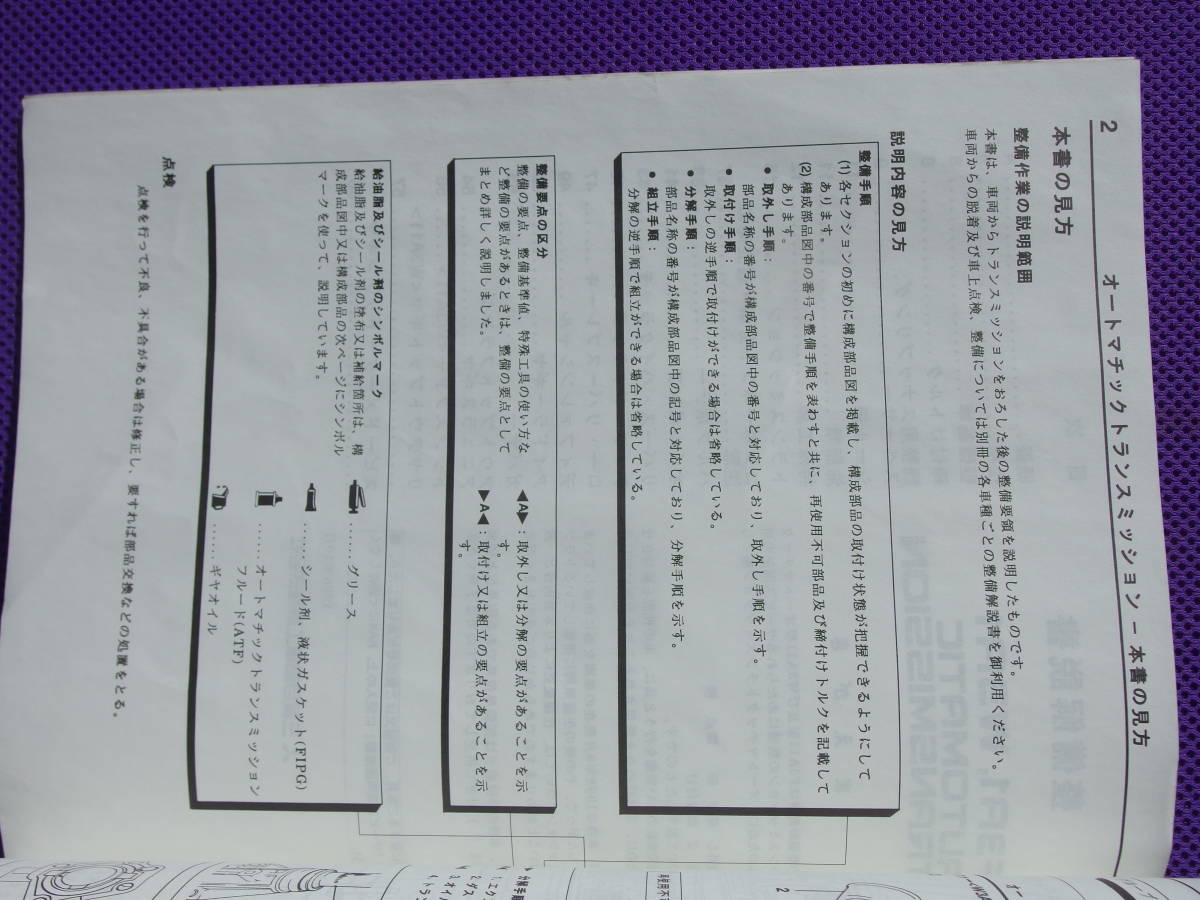 2
オートマチックトランスミッション－本書の見方
本書の見方
整備作業の説明範囲
本書は、車両からトランスミッションをおろした後の整備要領を説明したものです。
車両からの脱着及び車上点検、整備については別冊の各車種ごとの整備解説書を御利用ください。
説明内容の見方
整備手順
(1) 各セクションの初めに構成部品図を掲載し、構成部品の取付け状態が把握できるようにして
あります。
(2) 構成部品図中の番号で整備手順を表わすと共に、再使用不可部品及び締付けトルクを記載して
あります。
● 取外し手順：
部品名称の番号が構成部品図中の番号と対応しており、取外し手順を示す。
● 取付け手順：
取外しの逆手順で取付けができる場合は省略している。
● 分解手順：
部品名称の番号が構成部品図中の記号と対応しており、分解手順を示す。
● 組立手順：
分解の逆手順で組立ができる場合は省略している。
整備要点の区分
整備の要点、整備基準値、特殊工具の使い方な
ど整備の要点があるときは、整備の要点として
まとめ詳しく説明しました。
◀A▶：取外し又は分解の要点があることを示
す。
▶A◀：取付け又は組立の要点があることを示
す。
給油脂及びシール剤のシンボルマーク
給油脂及びシール剤の塗布又は補給箇所は、構
成部品図中又は構成部品の次ページにシンボル
マークを使って、説明しています。
……グリース
……シール剤、液状ガスケット(FIPG)
……オートマチックトランスミッション
フルード(ATF)
……ギヤオイル
点検
点検を行って不良、不具合がある場合は修正し、要すれば部品交換などの処置をとる。
分解手順
1. エク
2. ダス
3. オイ
4. トラ
2